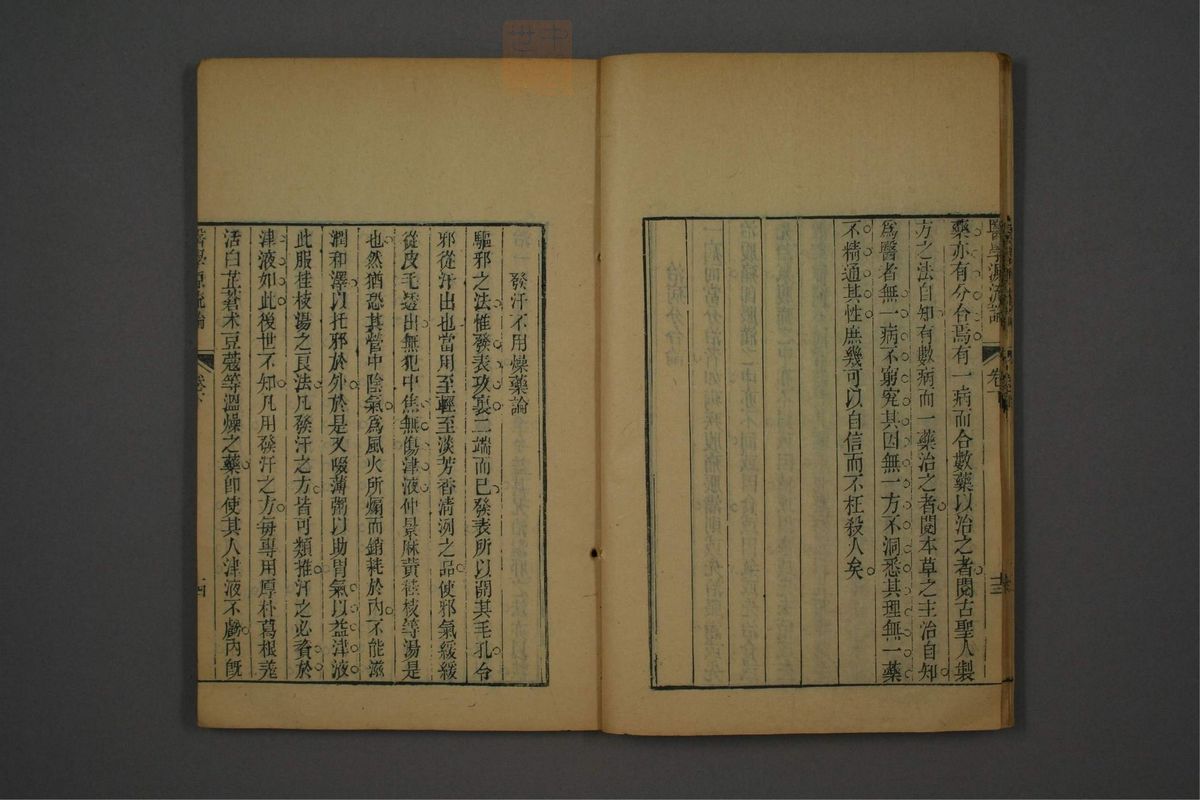 醫學源流論
卷下
十三
藥亦有分合焉有一病而合數藥以治之者閱古聖人製
方之法自知有數病而一藥治之者閱本草之主治自知
爲醫者無一病不窮究其因無一方不洞悉其理無一藥
不精通其性庶幾可以自信而不枉殺人矣
發汗不用燥藥論
驅邪之法惟發表攻裏二端而已發表所以開其毛孔令
邪從汗出也當用至輕至淡芳香清洌之品使邪氣緩緩
從皮毛透出無犯中焦無傷津液仲景麻黃桂枝等湯是
也然猶恐其營中陰氣爲風火所煽而銷耗於內不能滋
潤和澤以托邪於外於是又啜薄粥以助胃氣以益津液
此服桂枝湯之良法凡發汗之方皆可類推汗之必資於
津液如此後世不知凡用發汗之方每專用厚朴葛根羌
活白芷蒼朮豆蔻等溫燥之藥卽使其人津液不虧內旣
醫學源流論
卷下
十四